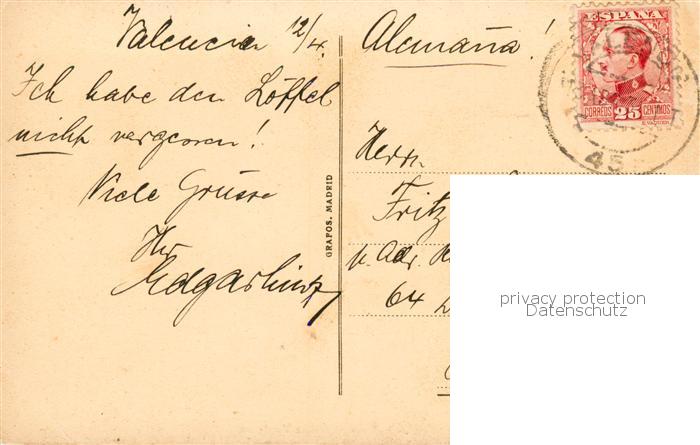 Valencia 12/4.
Ich habe den Löffel
nicht vergessen!
Viele Grüsse
Ihr
GRAFOS. MADRID
Alemaña!
Herrn
Fritz
64
ESPAÑA
CORREOS 25 CENTIMOS
45
privacy protection
Datenschutz